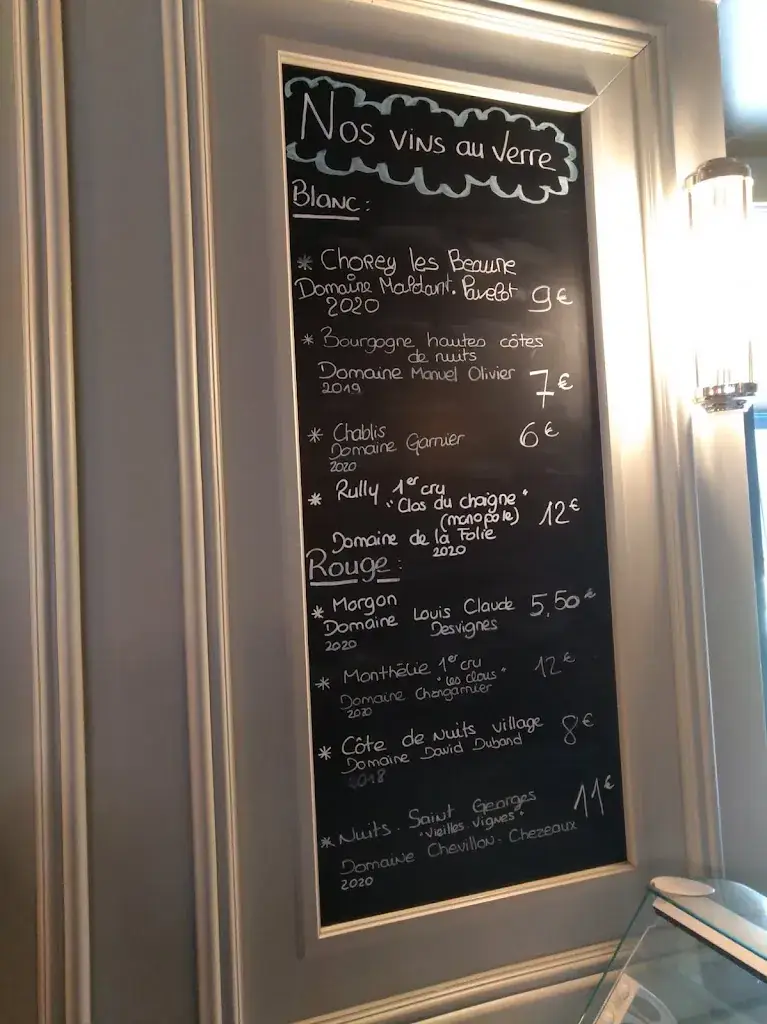 Nos vins au verre
Blanc :
* Chorey les Beaune
Domaine Maldant. Pavelot 9€
2020
* Bourgogne hautes côtes
de nuits
Domaine Manuel Olivier 7€
2019
* Chablis 6€
Domaine Garnier
2020
* Rully 1er cru
"Clos du chaigne"
(monopole) 12€
Domaine de la Folie
2020
Rouge :
* Morgon
Domaine Louis Claude 5,50€
Desvignes
2020
* Monthélie 1er cru 12€
"les clous"
Domaine Changarnier
2020
* Côte de nuits village 8€
Domaine David Duband
2018
* Nuits. Saint Georges 11€
"Vieilles Vignes"
Domaine Chevillon. Chezeaux
2020